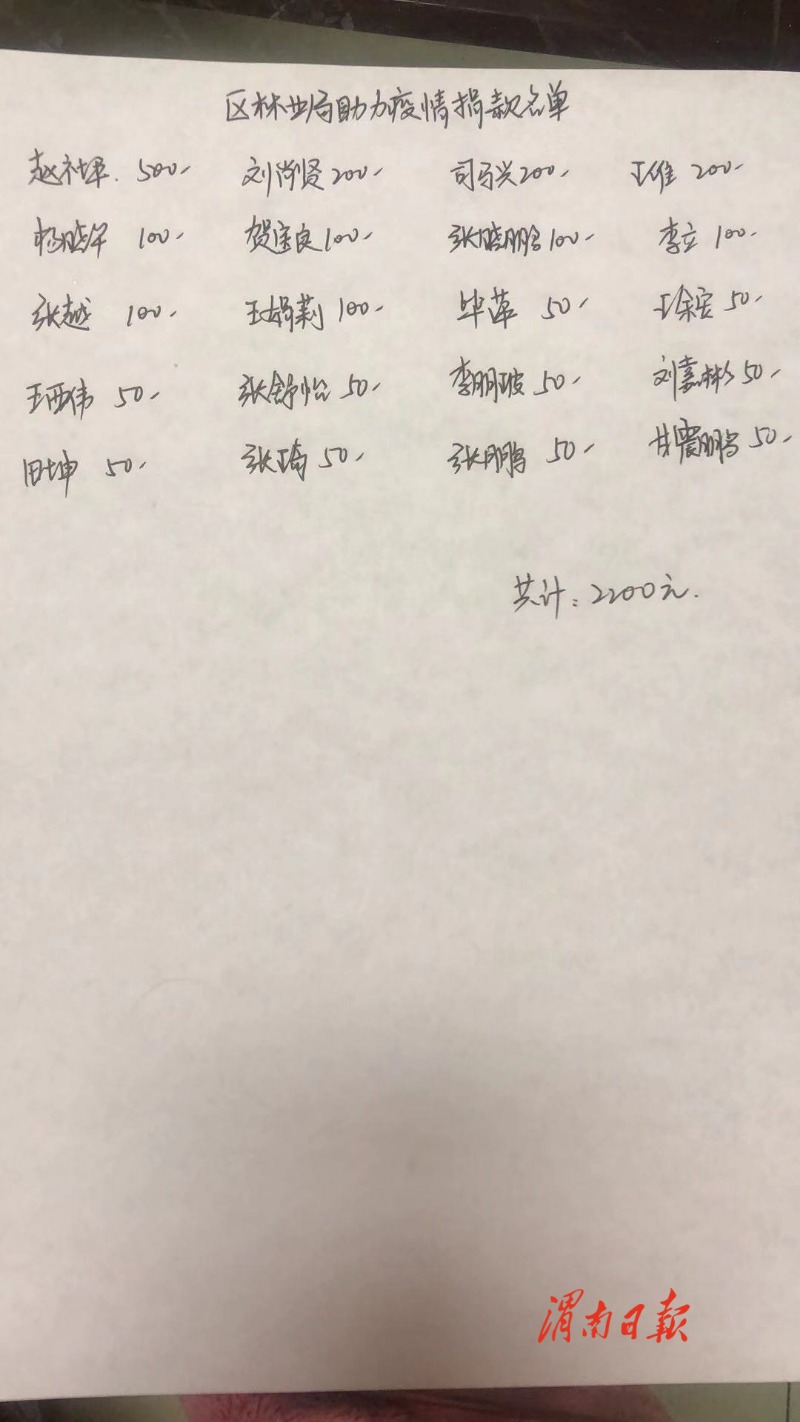 区林业局助力疫情捐款名单
赵社坪. 500- 刘尚贤 200- 司马兴 200- 王维 200-
杨晓华 100- 贺宝良 100- 张晓鹏 100- 李立 100-
张越 100- 王娟莉 100- 毕萍 50- 王余宏 50-
王西伟 50- 张舒怡 50- 李朋玻 50- 刘嘉彬 50-
田坤 50- 张琦 50- 张鹏 50- 甘震鹏 50-
共计: 2200元.
渭南日報